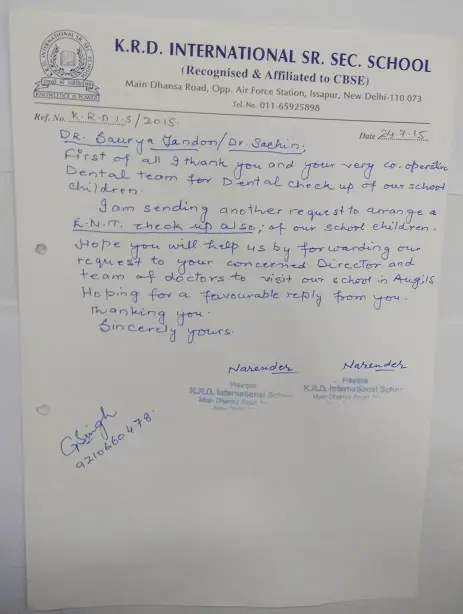 K.R.D. INTERNATIONAL SR. SEC. SCHOOL
(Recognised & Affiliated to CBSE)
Main Dhansa Road, Opp. Air Force Station, Issapur, New Delhi-110 073
Tel. No. 011-65925898
KNOWLEDGE IS POWER
Ref. No. K.R.D I.S/2015.
Date 24.7.15
DR. Saurya Tandon/Dr. Sachin,
First of all I thank you and your very co-operative
Dental team for Dental check up of our school
children.
I am sending another request to arrange a
E.N.T. check up also, of our school children.
Hope you will help us by forwarding our
request to your concerned Director and
team of doctors to visit our school in Aug,15
Hoping for a favourable reply from you.
Thanking you.
Sincerely yours.
Narender
Narender
Principal
Principal
K.R.D. International
K.R.D. International
Main Dhansa Road
Main Dhansa Road
GSingh
9210660478.